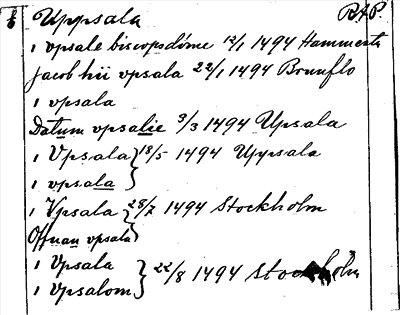 Uppsala R.A.P.
i vpsale biscopsdöme 12/1 1494 Hammerta
Jacob hii vpsala 22/1 1494 Brunflo
i vpsala
Datum vpsalie 3/3 1494 Upsala
i Vpsala } 18/5 1494 Uppsala
i vpsala
i Vpsala } 28/7 1494 Stockholm
Offuan vpsala
i Vpsala } 22/8 1494 Stockholm
i Vpsalom